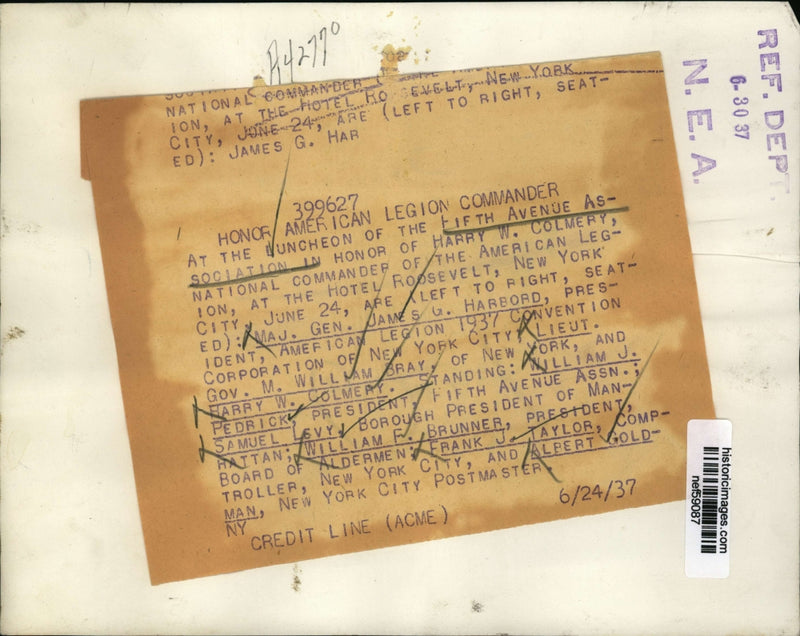 R4277°
REF. DEPT.
6-30 37
N. E. A.
NATIONAL COMMANDER
ION, AT THE HOTEL ROOSEVELT, NEW YORK
CITY, JUNE 24, ARE (LEFT TO RIGHT, SEAT-
ED): JAMES G. HAR
399627
HONOR AMERICAN LEGION COMMANDER
AT THE LUNCHEON OF THE FIFTH AVENUE AS-
SOCIATION IN HONOR OF HARRY W. COLMERY,
NATIONAL COMMANDER OF THE AMERICAN LEG-
ION, AT THE HOTEL ROOSEVELT, NEW YORK
CITY, JUNE 24, ARE (LEFT TO RIGHT, SEAT-
ED): MAJ. GEN. JAMES G. HARBORD, PRES-
IDENT, AMERICAN LEGION 1937 CONVENTION
CORPORATION OF NEW YORK CITY; LIEUT.
GOV. M. WILLIAM BRAY, OF NEW YORK, AND
HARRY W. COLMERY. STANDING: WILLIAM J.
PEDRICK, PRESIDENT, FIFTH AVENUE ASSN.;
SAMUEL LEVY, BOROUGH PRESIDENT OF MAN-
HATTAN; WILLIAM F. BRUNNER, PRESIDENT,
BOARD OF ALDERMEN; FRANK J. TAYLOR, COMP-
TROLLER, NEW YORK CITY, AND ALBERT GOLD-
MAN, NEW YORK CITY POSTMASTER.
NY
6/24/37
CREDIT LINE (ACME)
historicimages.com
nef59087